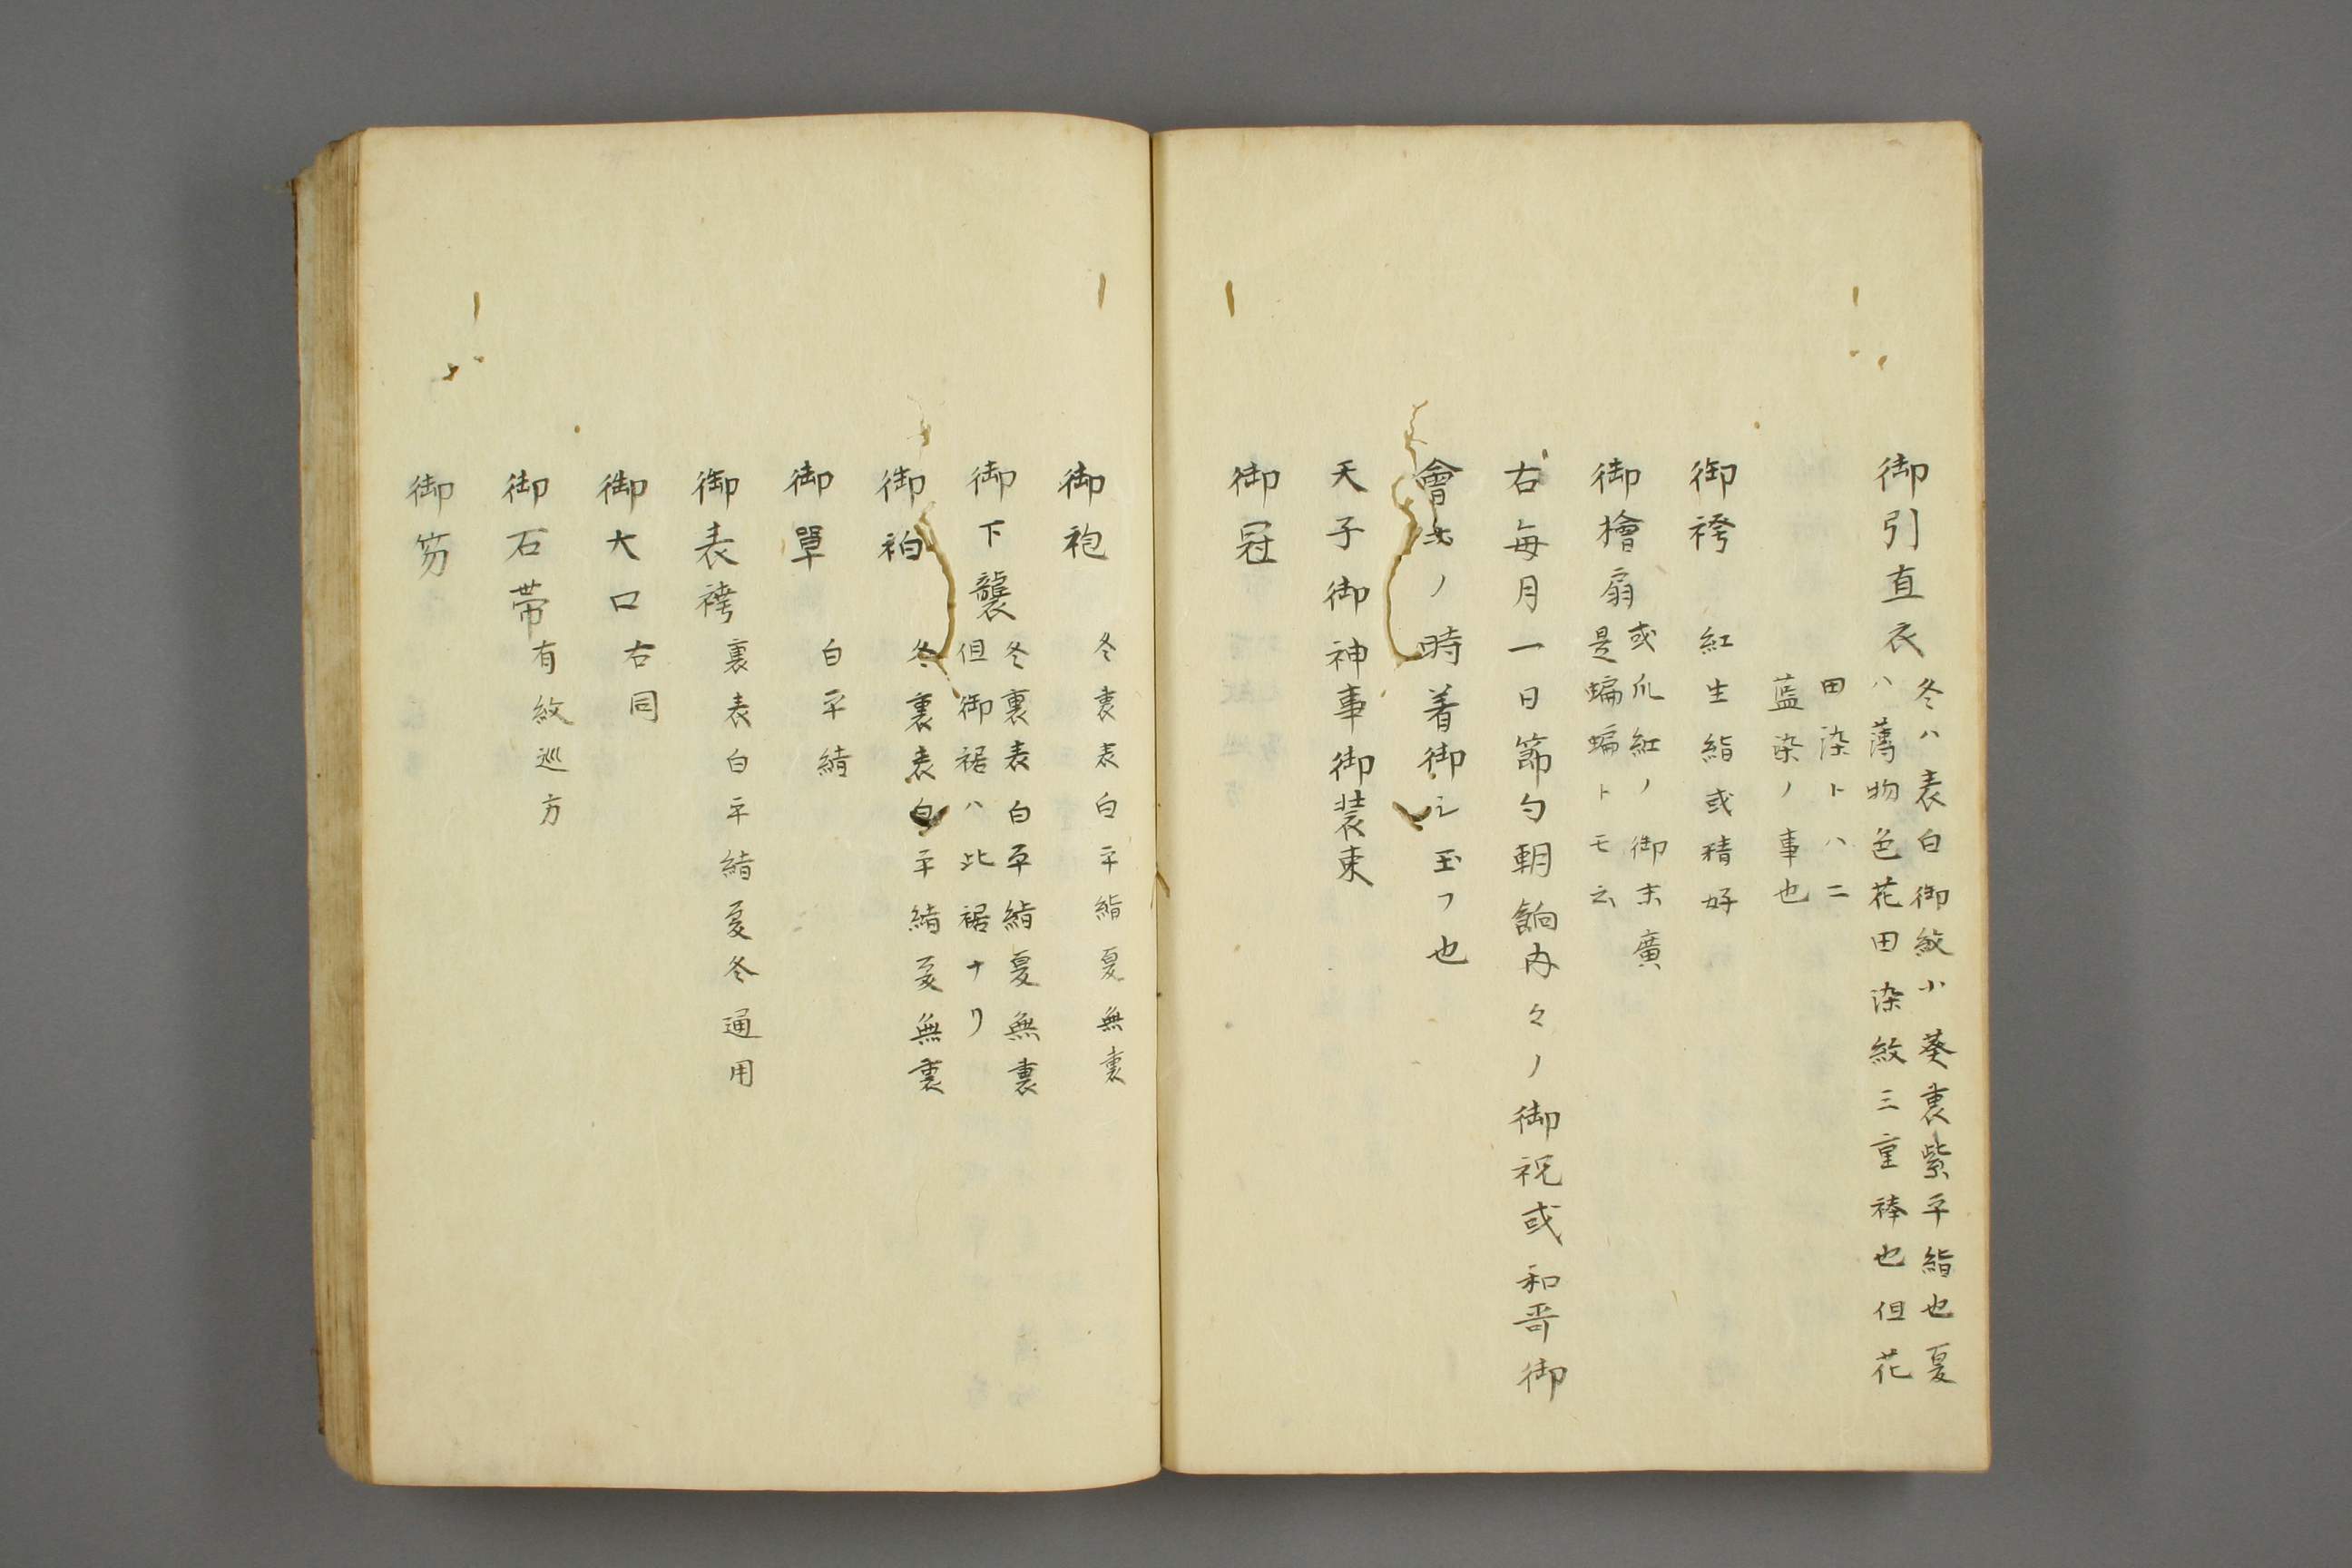 御引直衣
冬ハ表白御紋小葵裏紫平絹也夏
ハ薄物色花田染紋三重襷也但花
田染トハ二
藍染ノ事也
御袴 紅生絹或精好
御檜扇
或爪紅ノ御末廣
是蝙蝠トモ云
右毎月一日節句朝餉内々ノ御祝或和哥御
會等ノ時着御シ玉フ也
天子御神事御装束
御冠
御袍 冬裏表白平絹夏無裏
御下襲
冬裏表白平絹夏無裏
但御裾ハ此裾ナリ
御衵 冬裏表白平絹夏無裏
御單 白平絹
御表袴 裏表白平絹夏冬通用
御大口 右同
御石帯 有紋巡方
御笏